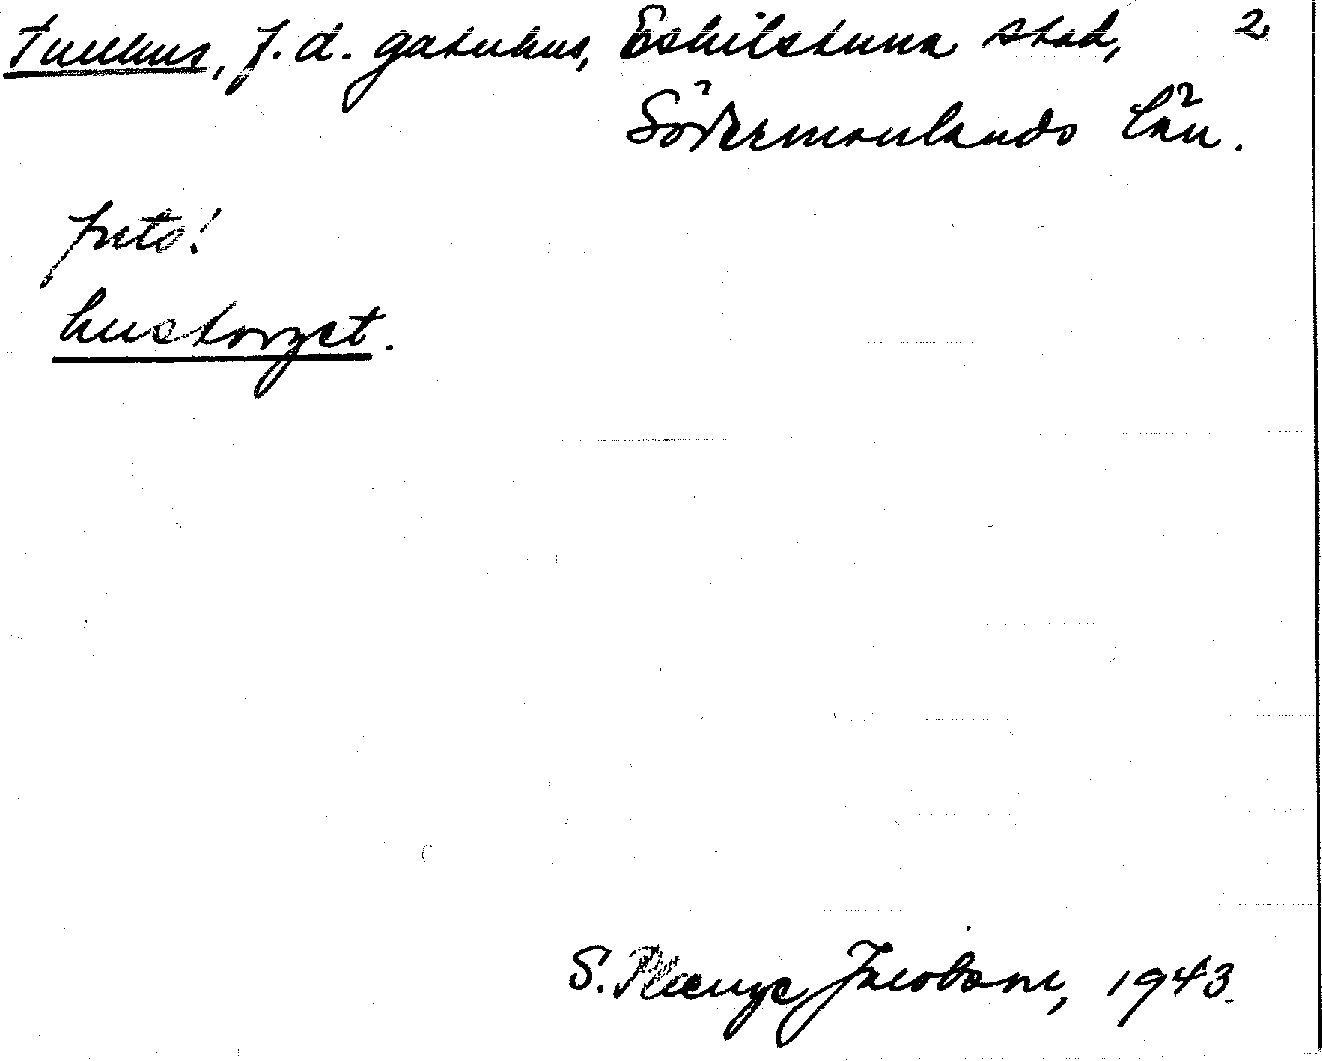 Tunhus, f.d. gatuhus, Eskilstuna stad, 2
Södermanlands län.
foto!
hustorget.
S. Plænge Jacobson, 1943.